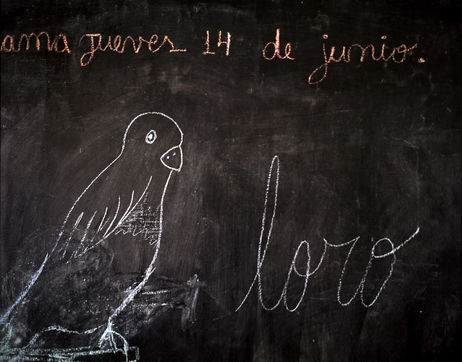 ama jueves 14 de junio.
loro